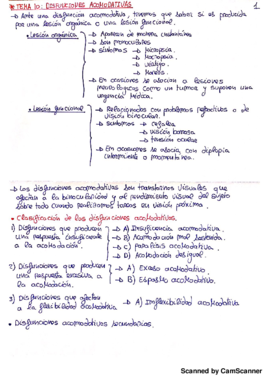 * TEMA 10: DISFUNCIONES ACOMODATIVAS. 1
→ Ante una disfunción acomodativa, tenemos que saber si es producida
por una lesión orgánica o una lesión funcional.
• Lesión orgánica
→ Aparecen de manera instantánea
→ Son monoculares
→ Síntomas → Micropsia.
→ Macropsia.
→ Vértigo.
→ Mareos.
→ En ocasiones se asocian a lesiones
neurológicas como un tumor y suponen una
urgencia médica.
• Lesión funcional
→ Relacionadas con problemas refractivos o de
visión binocular.
→ Síntomas → Cefalea
→ visión borrosa
→ tensión ocular
→ En ocasiones se asocia, con diplopía
intermitente o momentánea.
→ Las disfunciones acomodativas son trastornos visuales que
afectan a la binocularidad y al rendimiento visual del sujeto
sobre todo cuando realizamos tareas en visión próxima.
• Clasificación de las disfunciones acomodativas.
1) Disfunciones que producen
una respuesta insuficiente
a la acomodación.
→ A) Insuficiencia acomodativa.
→ B) Acomodación mal sostenida.
→ C) Parálisis acomodativa.
→ D) Acomodación desigual.
2) Disfunciones que producen
una respuesta excesiva a
la acomodación.
→ A) Exceso acomodativo.
→ B) Espasmo acomodativo.
3) Disfunciones que afectan
a la flexibilidad acomodativa
→ A) Inflexibilidad acomodativa
• Disfunciones acomodativas secundarias.
Scanned by CamScanner